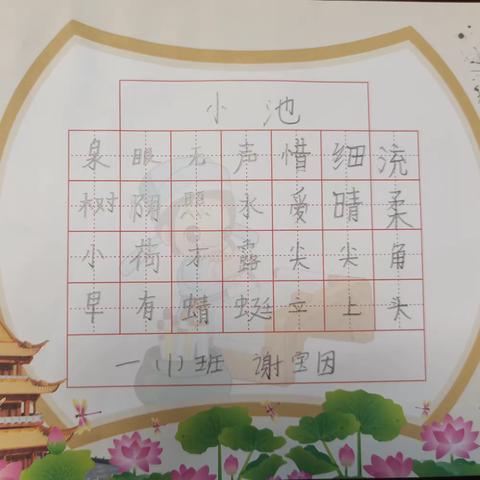 小池
泉眼无声惜细流
树阴照水爱晴柔
小荷才露尖尖角
早有蜻蜓立上头
一(1)班 谢宝因